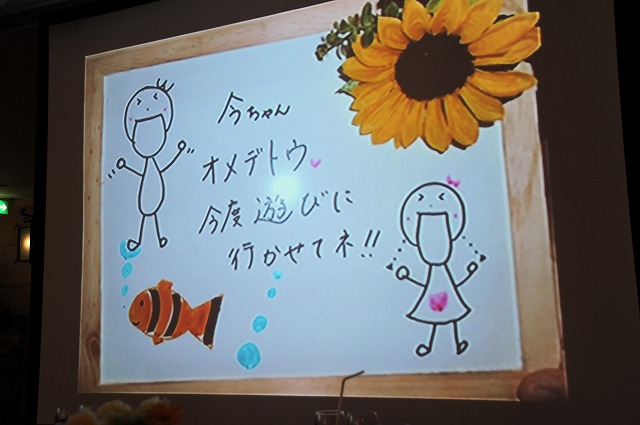 今ちゃん
オメデトウ
今度遊びに
行かせてネ!!